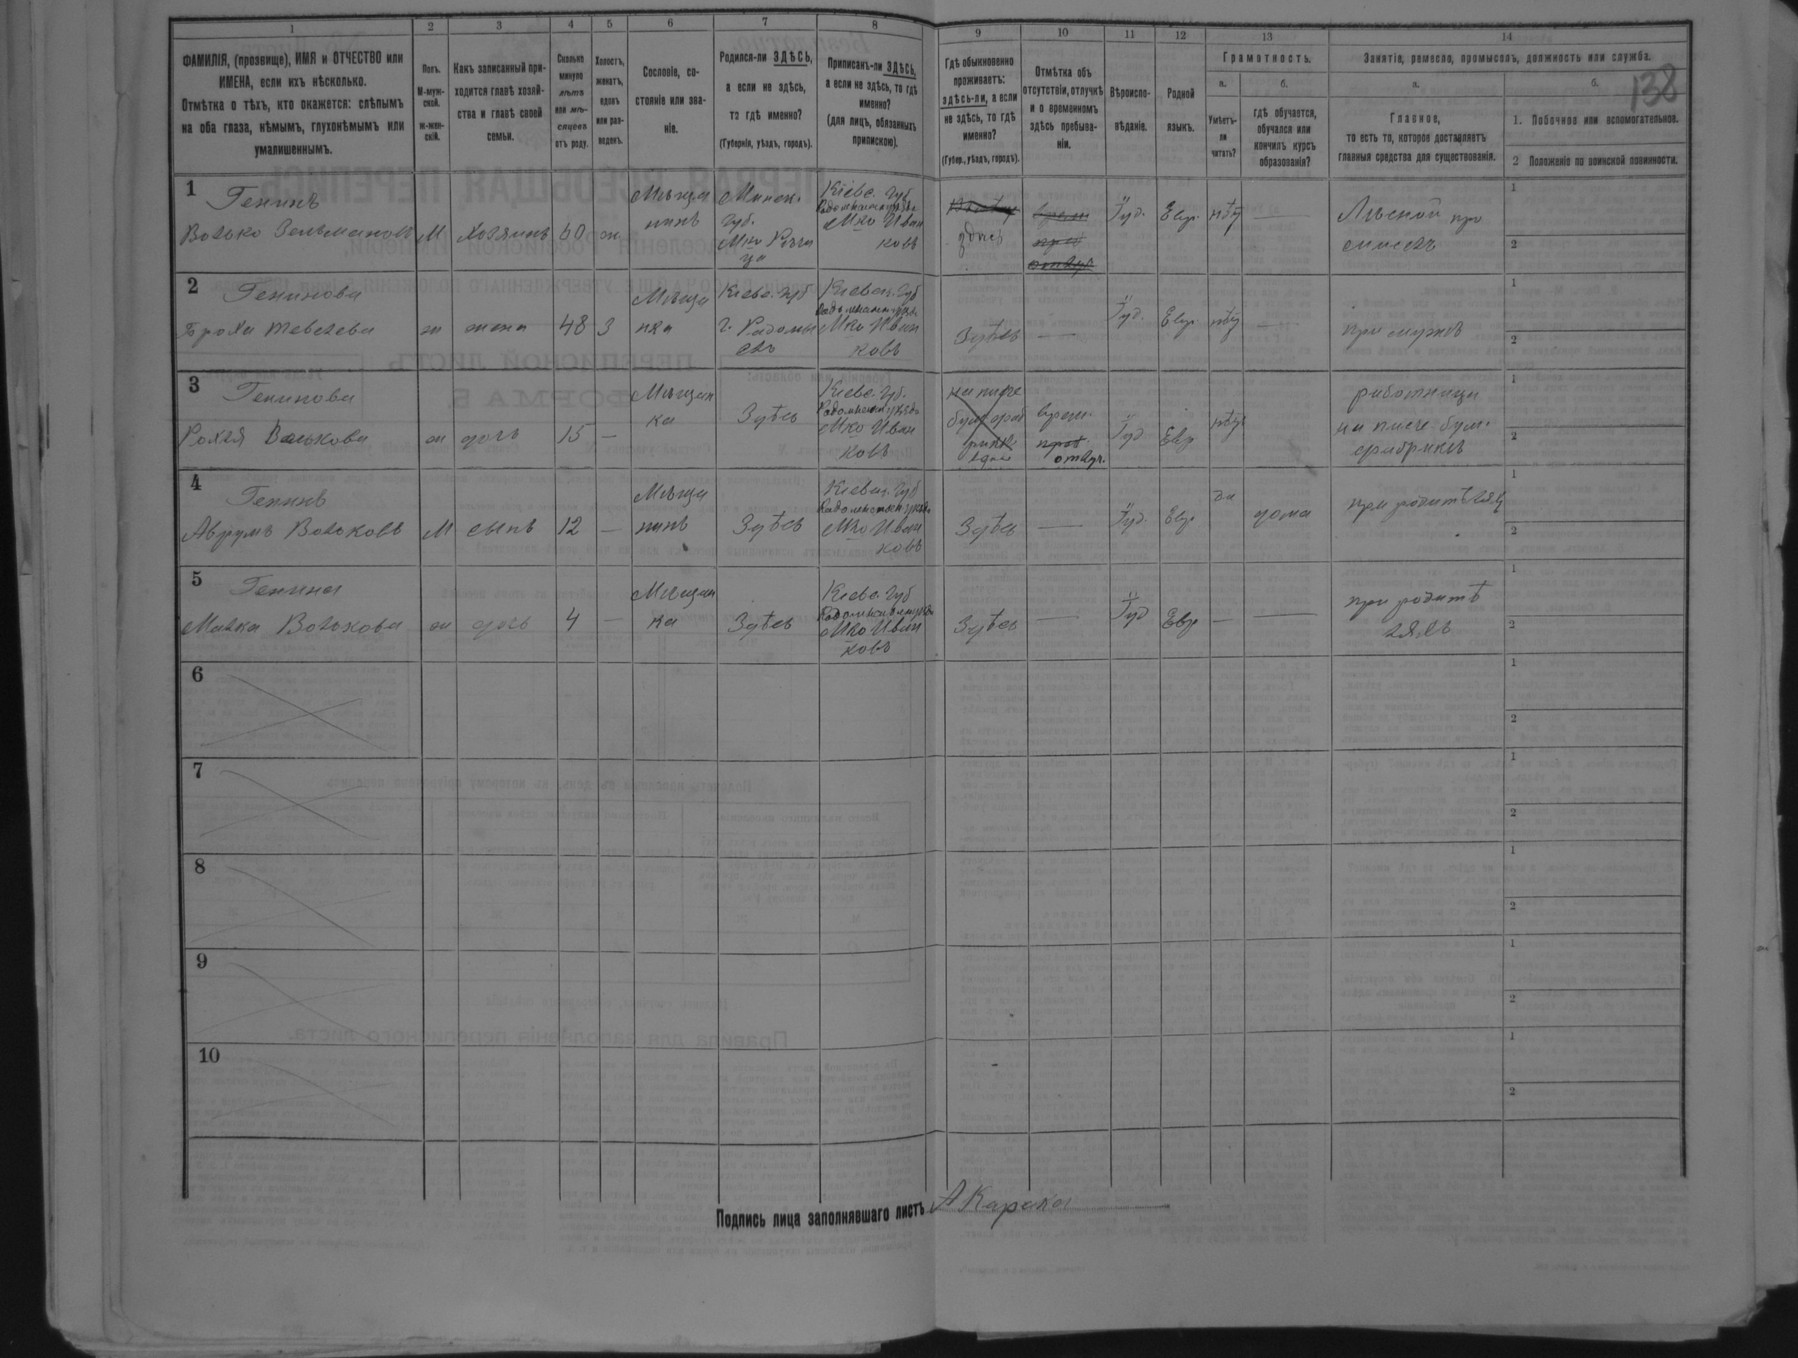 1 2 3 4 5 6 7 8 9 10 11 12 13 14
138
ФАМИЛІЯ, (прозвище), ИМЯ и ОТЧЕСТВО или
ИМЕНА, если ихъ нѣсколько.
Отмѣтка о тѣхъ, кто окажется: слѣпымъ
на оба глаза, нѣмымъ, глухонѣмымъ или
умалишеннымъ.
Полъ.
М-муж-
ской.
ж-жен-
скій.
Какъ записанный при-
ходится главѣ хозяй-
ства и главѣ своей
семьи.
Сколько
минуло
лѣтъ
или мѣ-
сяцевъ
отъ роду.
Холостъ,
женатъ,
вдовъ
или раз-
веденъ.
Сословіе, со-
стояніе или зва-
ніе.
Родился-ли ЗДѢСЬ,
а если не здѣсь,
то гдѣ именно?
(Губернія, уѣздъ, городъ).
Приписанъ-ли ЗДѢСЬ,
а если не здѣсь, то гдѣ
именно?
(для лицъ, обязанныхъ
припискою).
Гдѣ обыкновенно
проживаетъ:
здѣсь-ли, а если
не здѣсь, то гдѣ
именно?
(Губер., уѣздъ, городъ).
Отмѣтка объ
отсутствіи, отлучкѣ
и о временномъ
здѣсь пребыва-
ніи.
Вѣроиспо-
вѣданіе.
Родной
языкъ.
Грамотность.
а.
Умѣетъ-
ли
читать?
б.
гдѣ обучается,
обучался или
кончилъ курсъ
образованія?
Занятіе, ремесло, промыселъ, должность или служба.
а.
Главное,
то есть то, которое доставляетъ
главныя средства для существованія.
б.
1. Побочное или вспомогательное.
2 Положеніе по воинской повинности.
1
Генинъ
Волько Зельмановъ
М
Хозяинъ
60
ж.
Мѣща
нинъ
Минск.
губ.
Мко Рѣчи
ца
Кіевс. Губ
Радомысльск уѣзд.
Мко Иван
ковъ
здѣсь
Іуд.
Евр.
нѣт
—
Лѣсной про
мыселъ
1
2
2
Генинова
Броха
ж
жена
48
З
Мѣща
нка
Кіевс. губ
г. Радомы
слъ
Кіевск. Губ
Мко Иван
ковъ
Здѣсь
—
Іуд.
Евр.
нѣт
—
при мужѣ
1
2
3
Генинова
Рохля Волькова
ж
дочь
15
—
Мѣщан
ка
Здѣсь
Кіевс. Губ.
Мко Иван
ковъ
на писче
врем.
отлуч.
Іуд
Евр
нѣт
работница
на писче бум.
фабрикѣ
1
2
4
Генинъ
Аврумъ Вольковъ
М
сынъ
12
—
Мѣща
нинъ
Здѣсь
Кіевск. Губ
Мко Иван
ковъ
Здѣсь
—
Іуд.
Евр
да
дома
при родителях
1
2
5
Генина
Малка Волькова
ж
дочь
4
—
Мѣщан
ка
Здѣсь
Кіевс. Губ
Мко Иван
ковъ
Здѣсь
—
Іуд
Евр
—
—
при родите
ляхъ
1
2
6
1
2
7
1
2
8
1
2
9
1
2
10
1
2
Подпись лица заполнявшаго листъ